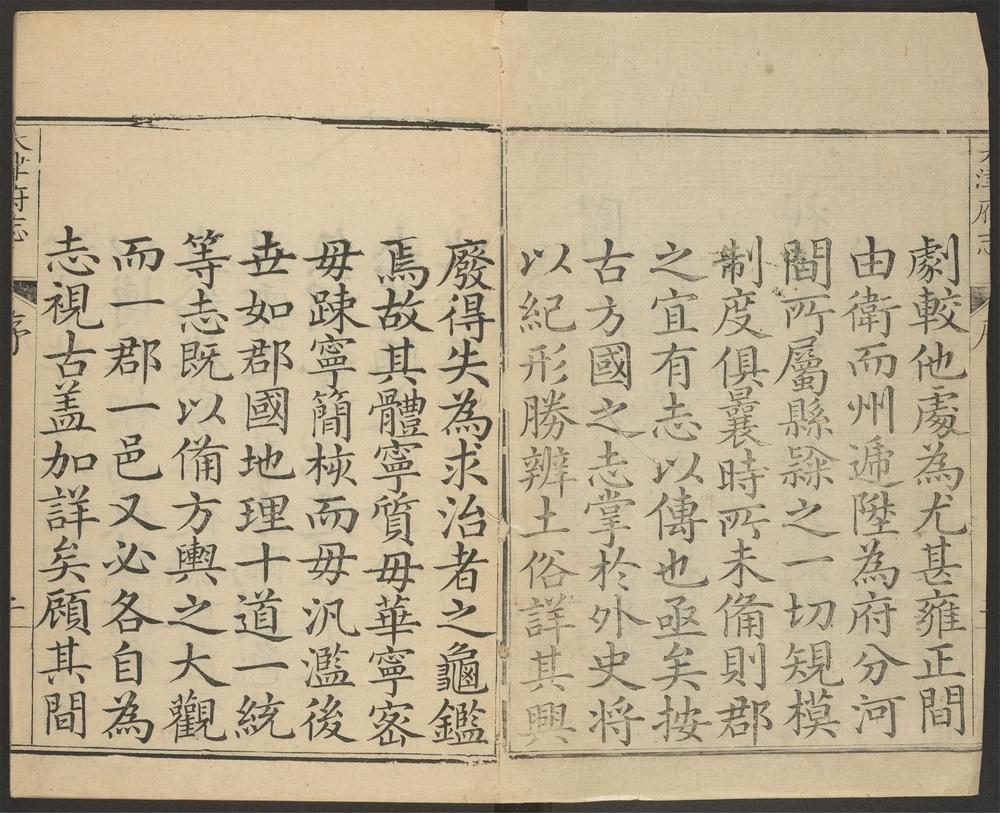 劇較他處為尤甚雍正間
由衛而州遞陞為府分河
間所屬縣隸之一切規模
制度俱曩時所未備則郡
之宜有志以傳也亟矣按
古方國之志掌於外史將
以紀形勝辨土俗詳其興
廢得失為求治者之龜鑑
焉故其體寧質毋華寧宻
毋踈寧簡核而毋汎濫後
世如郡國地理十道一統
等志既以備方輿之大觀
而一郡一邑又必各自為
志視古盖加詳矣顧其間
天津府志
序
二